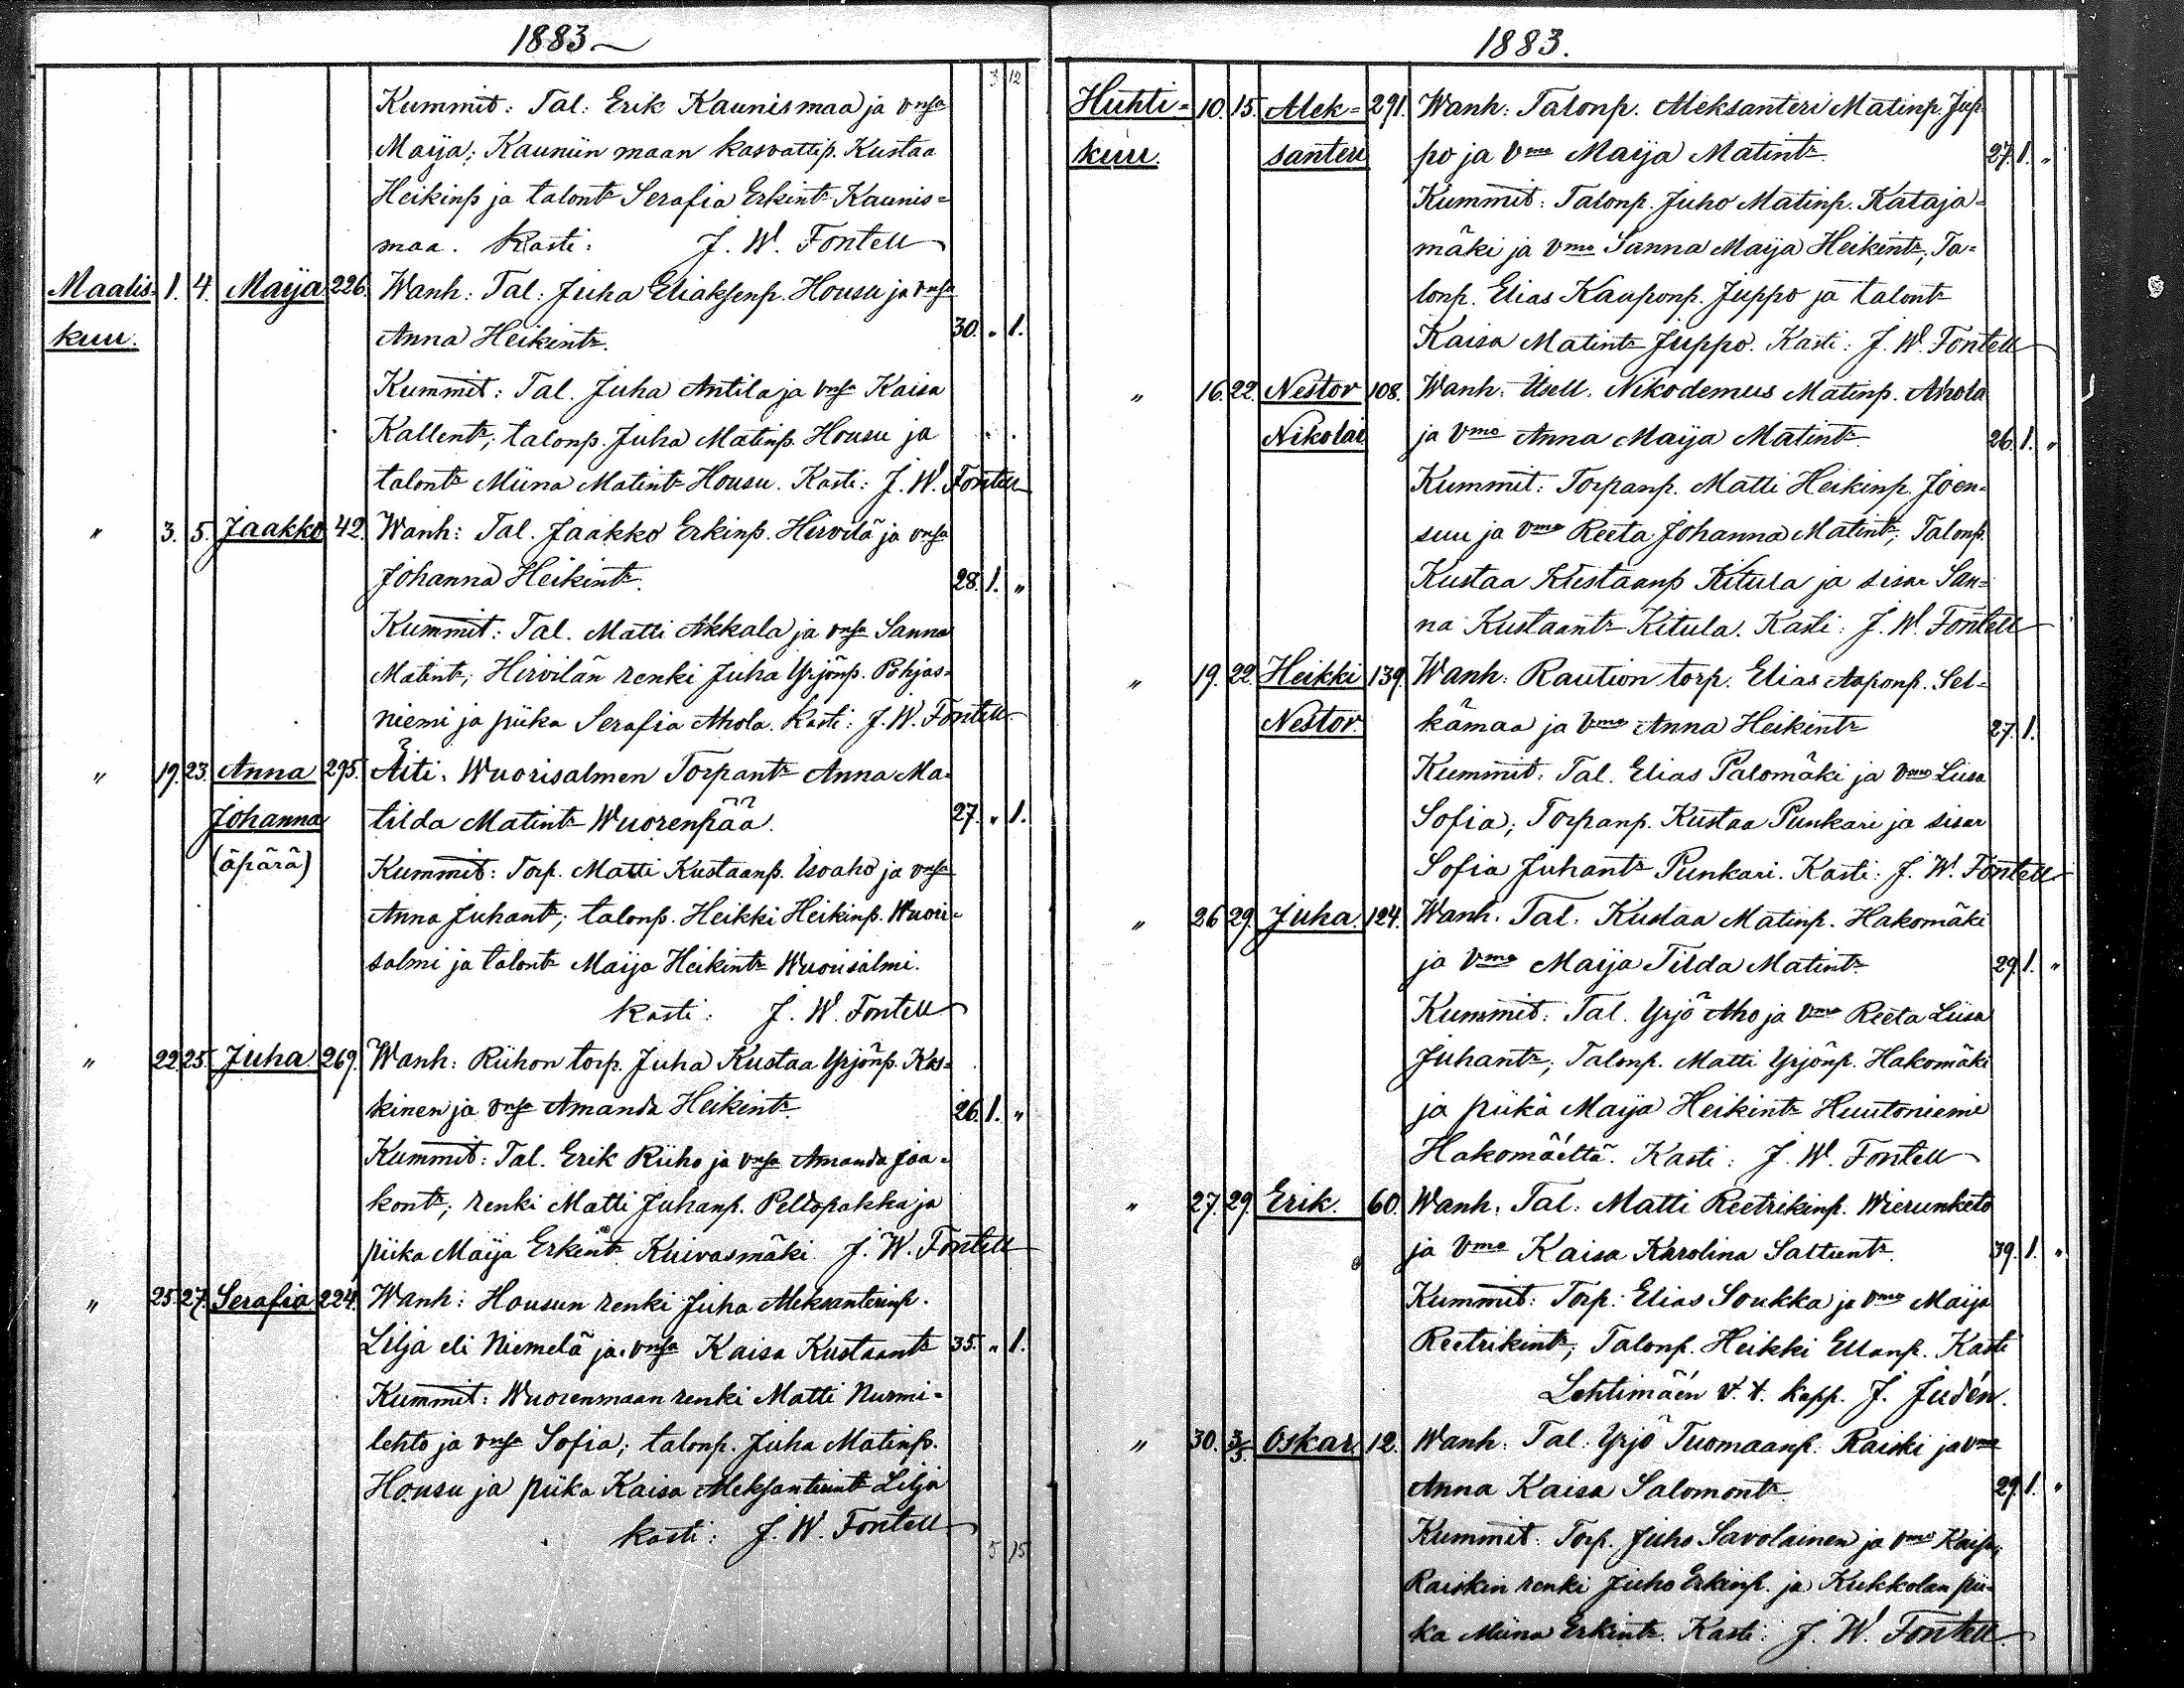 1883
3 12
Kummit: Tal: Erik Kaunismaa ja vmsa
Maija; Kauniin maan kasvattip. Kustaa
Heikinp ja talontr Serafia Erkintr Kaunis=
maa. Kasti: J. W. Fontell
Maalis= 1. 4. Maija 226. Wanh: Tal: Juha Eliaksenp. Housu ja vmsa
kuu. Anna Heikintr. 30. " 1.
Kummit: Tal. Juha Antila ja vmsa Kaisa
Kallentr; talonp. Juha Matinp. Housu ja
talontr Miina Matintr Housu. Kasti: J. W. Fontell
" 3. 5. Jaakko 42. Wanh: Tal. Jaakko Erkinp. Hirvilä ja vmsa
Johanna Heikintr. 28. 1. "
Kummit: Tal. Matti Akkala ja vmsa Sanna
Matintr; Hirvilän renki Juha Yrjönp. Pohjas=
niemi ja piika Serafia Ahola. Kasti: J. W. Fontell
" 19. 23. Anna 295. Äiti: Wuorisalmen Torpantr Anna Ma=
Johanna tilda Matintr Wuorenpää. 27. " 1.
(äpärä) Kummit: Torp. Matti Kustaanp. Isoaho ja vmsa
Anna Juhantr; talonp. Heikki Heikinp. Wuori=
salmi ja talontr Maija Heikintr Wuorisalmi.
kasti: J. W. Fontell
" 22. 25. Juha. 269. Wanh: Riihon torp. Juha Kustaa Yrjönp. Kos=
kinen ja vmsa Amanda Heikintr. 26. 1. "
Kummit: Tal. Erik Riiho ja vmsa Amanda Jaa=
kontr; renki Matti Juhanp. Peltopakka ja
piika Maija Erkintr Kuivasmäki. J. W. Fontell
" 25. 27. Serafia 224. Wanh: Housun renki Juha Aleksanterinp.
Lilja eli Niemelä ja vmsa Kaisa Kustaantr 35. " 1.
Kummit: Wuorenmaan renki Matti Nurmi=
lehto ja vmsa Sofia; talonp. Juha Matinp.
Housu ja piika Kaisa Aleksanterintr Lilja
kasti: J. W. Fontell
5 15
1883.
Huhti= 10. 15. Alek= 291. Wanh: Talonp. Aleksanteri Matinp. Jup=
kuu. santeri po ja vmo Maija Matintr 27. 1. "
Kummit: Talonp. Juho Matinp. Kataja=
mäki ja vmo Sanna Maija Heikintr; Ta=
lonp. Elias Kauponp. Juppo ja talontr
Kaisa Matintr Juppo. Kasti: J. W. Fontell
" 16. 22. Nestor 108. Wanh: Itsell. Nikodemus Matinp. Ahola
Nikolai ja vmo Anna Maija Matintr 26. 1. "
Kummit: Torpanp. Matti Heikinp. Joen=
suu ja vmo Reeta Johanna Matintr; Talonp.
Kustaa Kustaanp Kitula ja sisar San=
na Kustaantr Kitula. Kasti: J. W. Fontell
" 19. 22. Heikki 139. Wanh: Raution torp. Elias Aaponp. Sel=
Nestor. kämaa ja vmo Anna Heikintr 27. 1.
Kummit: Tal. Elias Palomäki ja vmo Liisa
Sofia; Torpanp. Kustaa Punkari ja sisar
Sofia Juhantr Punkari. Kasti: J. W. Fontell
" 26 29. Juha. 124. Wanh. Tal. Kustaa Matinp. Hakomäki
ja vmo Maija Tilda Matintr 29. 1. "
Kummit: Tal. Yrjö Aho ja vmo Reeta Liisa
Juhantr; Talonp. Matti Yrjönp. Hakomäki
ja piika Maija Heikintr Huutoniemi
Hakomäeltä. Kasti: J. W. Fontell
" 27. 29. Erik. 60. Wanh. Tal: Matti Reetrikinp. Wierunketo
ja vmo Kaisa Karolina Saltuntr. 39. 1. "
Kummit: Torp: Elias Soukka ja vmo Maija
Reetrikintr; Talonp. Heikki Ellanp. Kasti
Lehtimäen v. t. kapp. J. Judén.
" 30. 3/5 Oskar 12. Wanh. Tal: Yrjö Tuomaanp. Raiski ja vmo
Anna Kaisa Salomontr. 29. 1. "
Kummit: Torp. Juho Savolainen ja vmo Kaisa;
Raiskin renki Juho Erkinp. ja Kukkolan pii=
ka Miina Erkintr. Kasti: J. W. Fontell.